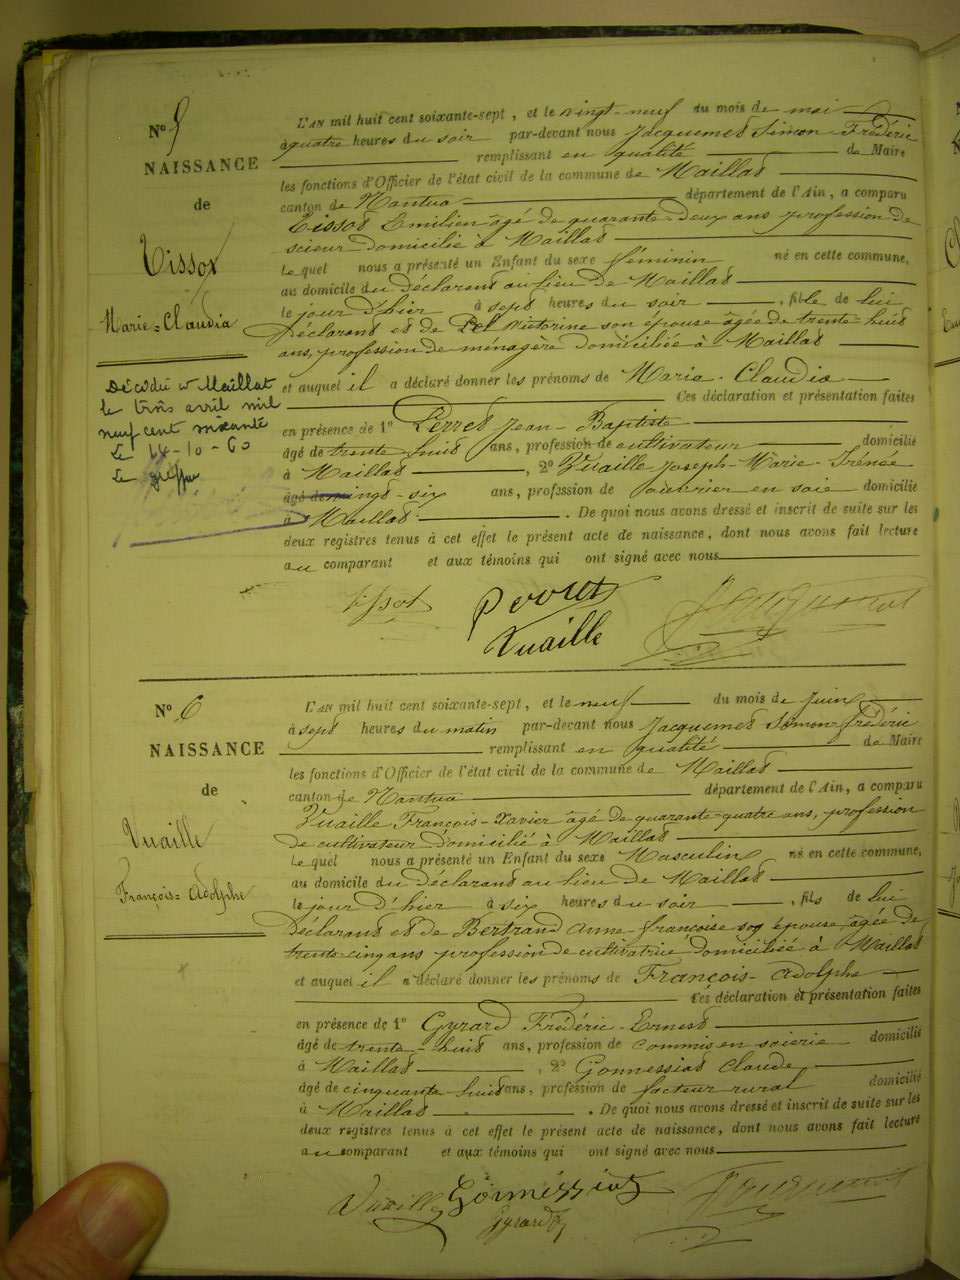 N° 5
NAISSANCE
de
Tissot
Marie-Claudia
Décédée à Maillat
le trois avril mil
neuf cent soixante
Le 14-10-60
Le greffier
L'AN mil huit cent soixante-sept, et le vingt-neuf du mois de mai
à quatre heures du soir par-devant nous Jacquemet Simon Frédéric
remplissant en qualité de Maire
les fonctions d'Officier de l'état civil de la commune de Maillat
canton de Nantua département de l'Ain, a comparu
Tissot Emilien âgé de quarante-deux ans profession de
scieur domicilié à Maillat
Lequel nous a présenté un Enfant du sexe féminin né en cette commune,
au domicile du déclarant au lieu de Maillat
le jour d'hier à sept heures du soir, fille de lui
Déclarant et de Victorine son épouse âgée de trente-huit
ans, profession de ménagère domiciliée à Maillat
et auquel il a déclaré donner les prénoms de Marie-Claudia
Ces déclaration et présentation faites
en présence de 1° Perret Jean-Baptiste
âgé de trente huit ans, profession de cultivateur domicilié
à Maillat, 2° Vuaille Joseph-Marie-Irénée
âgé de vingt-six ans, profession de ouvrier en soie domicilié
à Maillat. De quoi nous avons dressé et inscrit de suite sur les
deux registres tenus à cet effet le présent acte de naissance, dont nous avons fait lecture
au comparant et aux témoins qui ont signé avec nous
Tissot Perret Jacquemet
Vuaille
N° 6
NAISSANCE
de
Vuaille
François-Adolphe
L'AN mil huit cent soixante-sept, et le neuf du mois de Juin
à sept heures du matin par-devant nous Jacquemet Simon-Frédéric
remplissant en qualité de Maire
les fonctions d'Officier de l'état civil de la commune de Maillat
canton de Nantua département de l'Ain, a comparu
Vuaille François-Xavier âgé de quarante-quatre ans, profession
de cultivateur domicilié à Maillat
Lequel nous a présenté un Enfant du sexe Masculin né en cette commune,
au domicile du déclarant au lieu de Maillat
le jour d'hier à six heures du soir, fils de lui
Déclarant et de Bertrand Anne-françoise son épouse âgée de
trente-cinq ans profession de cultivatrice domiciliée à Maillat
et auquel il a déclaré donner les prénoms de François-Adolphe
Ces déclaration et présentation faites
en présence de 1° Gyrard Frédéric-Ernest
âgé de trente-huit ans, profession de commis en soierie domicilié
à Maillat, 2° Gonnessiat Claude
âgé de cinquante huit ans, profession de facteur rural domicilié
à Maillat. De quoi nous avons dressé et inscrit de suite sur les
deux registres tenus à cet effet le présent acte de naissance, dont nous avons fait lecture
au comparant et aux témoins qui ont signé avec nous
Vuaille Gonnessiat Jacquemet
Gyrard